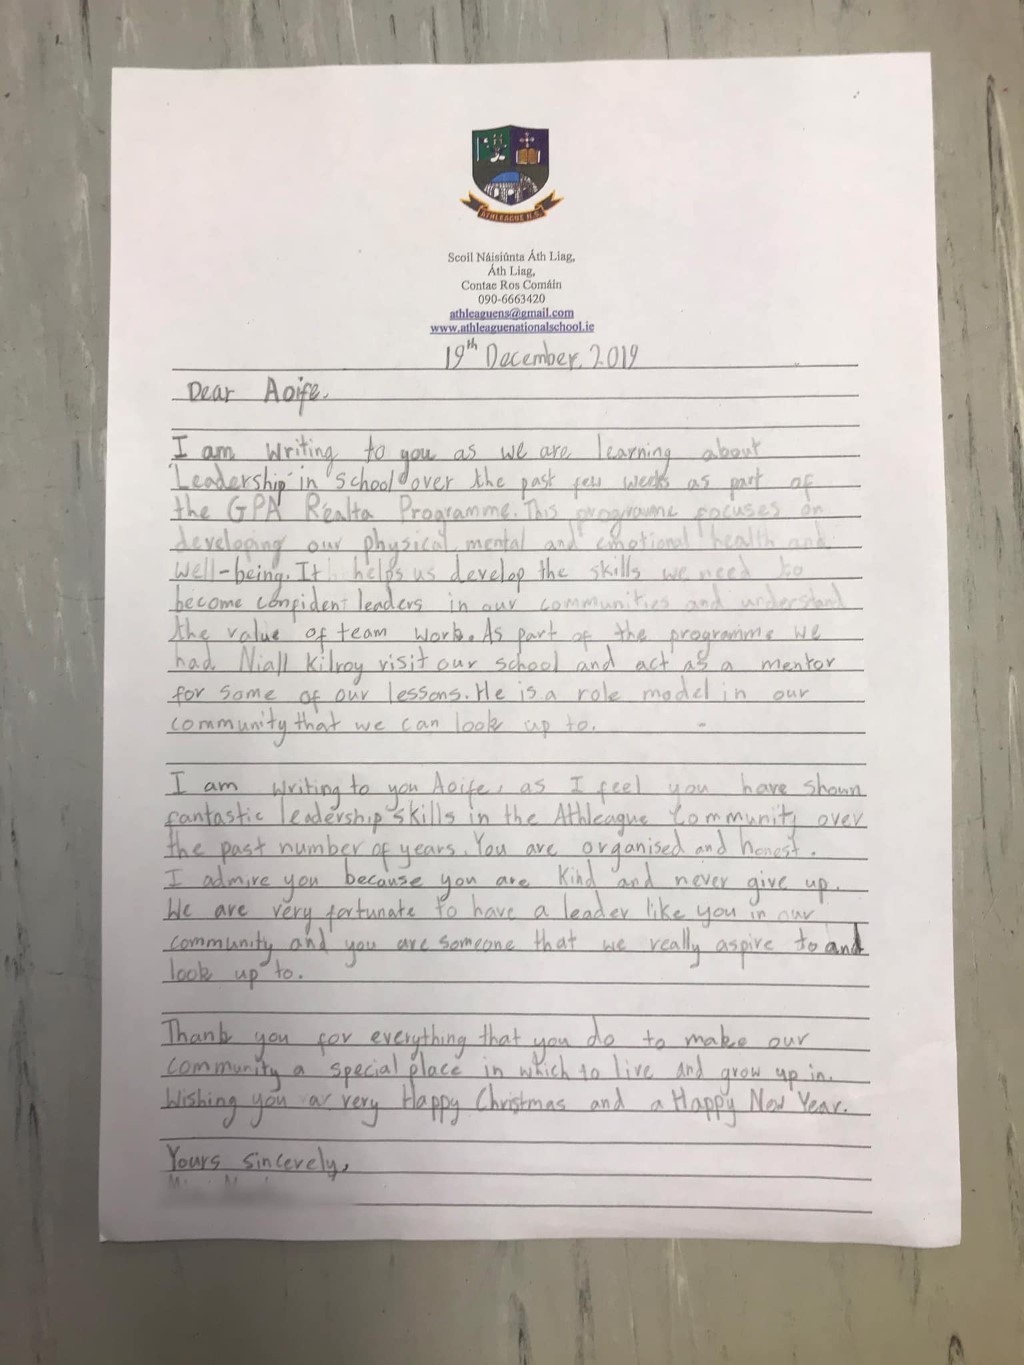 ATHLEAGUE N.S.
Scoil Náisiúnta Áth Liag,
Áth Liag,
Contae Ros Comáin
090-6663420
athleaguens@gmail.com
www.athleaguenationalschool.ie
19th December, 2019
Dear Aoife,
I am writing to you as we are learning about
'Leadership' in school over the past few weeks as part of
the GPA Réalta Programme. This programme focuses on
developing our physical, mental and emotional health and
well-being. It helps us develop the skills we need to
become confident leaders in our communities and understand
the value of team work. As part of the programme we
had Niall Kilroy visit our school and act as a mentor
for some of our lessons. He is a role model in our
community that we can look up to.
I am writing to you Aoife, as I feel you have shown
fantastic leadership skills in the Athleague Community over
the past number of years. You are organised and honest.
I admire you because you are kind and never give up.
We are very fortunate to have a leader like you in our
community and you are someone that we really aspire to and
look up to.
Thank you for everything that you do to make our
community a special place in which to live and grow up in.
Wishing you a very Happy Christmas and a Happy New Year.
Yours sincerely,